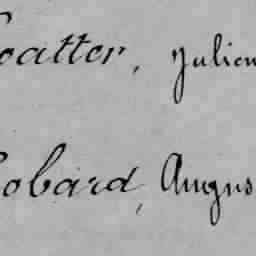 oatter, Julien
obard, Augus